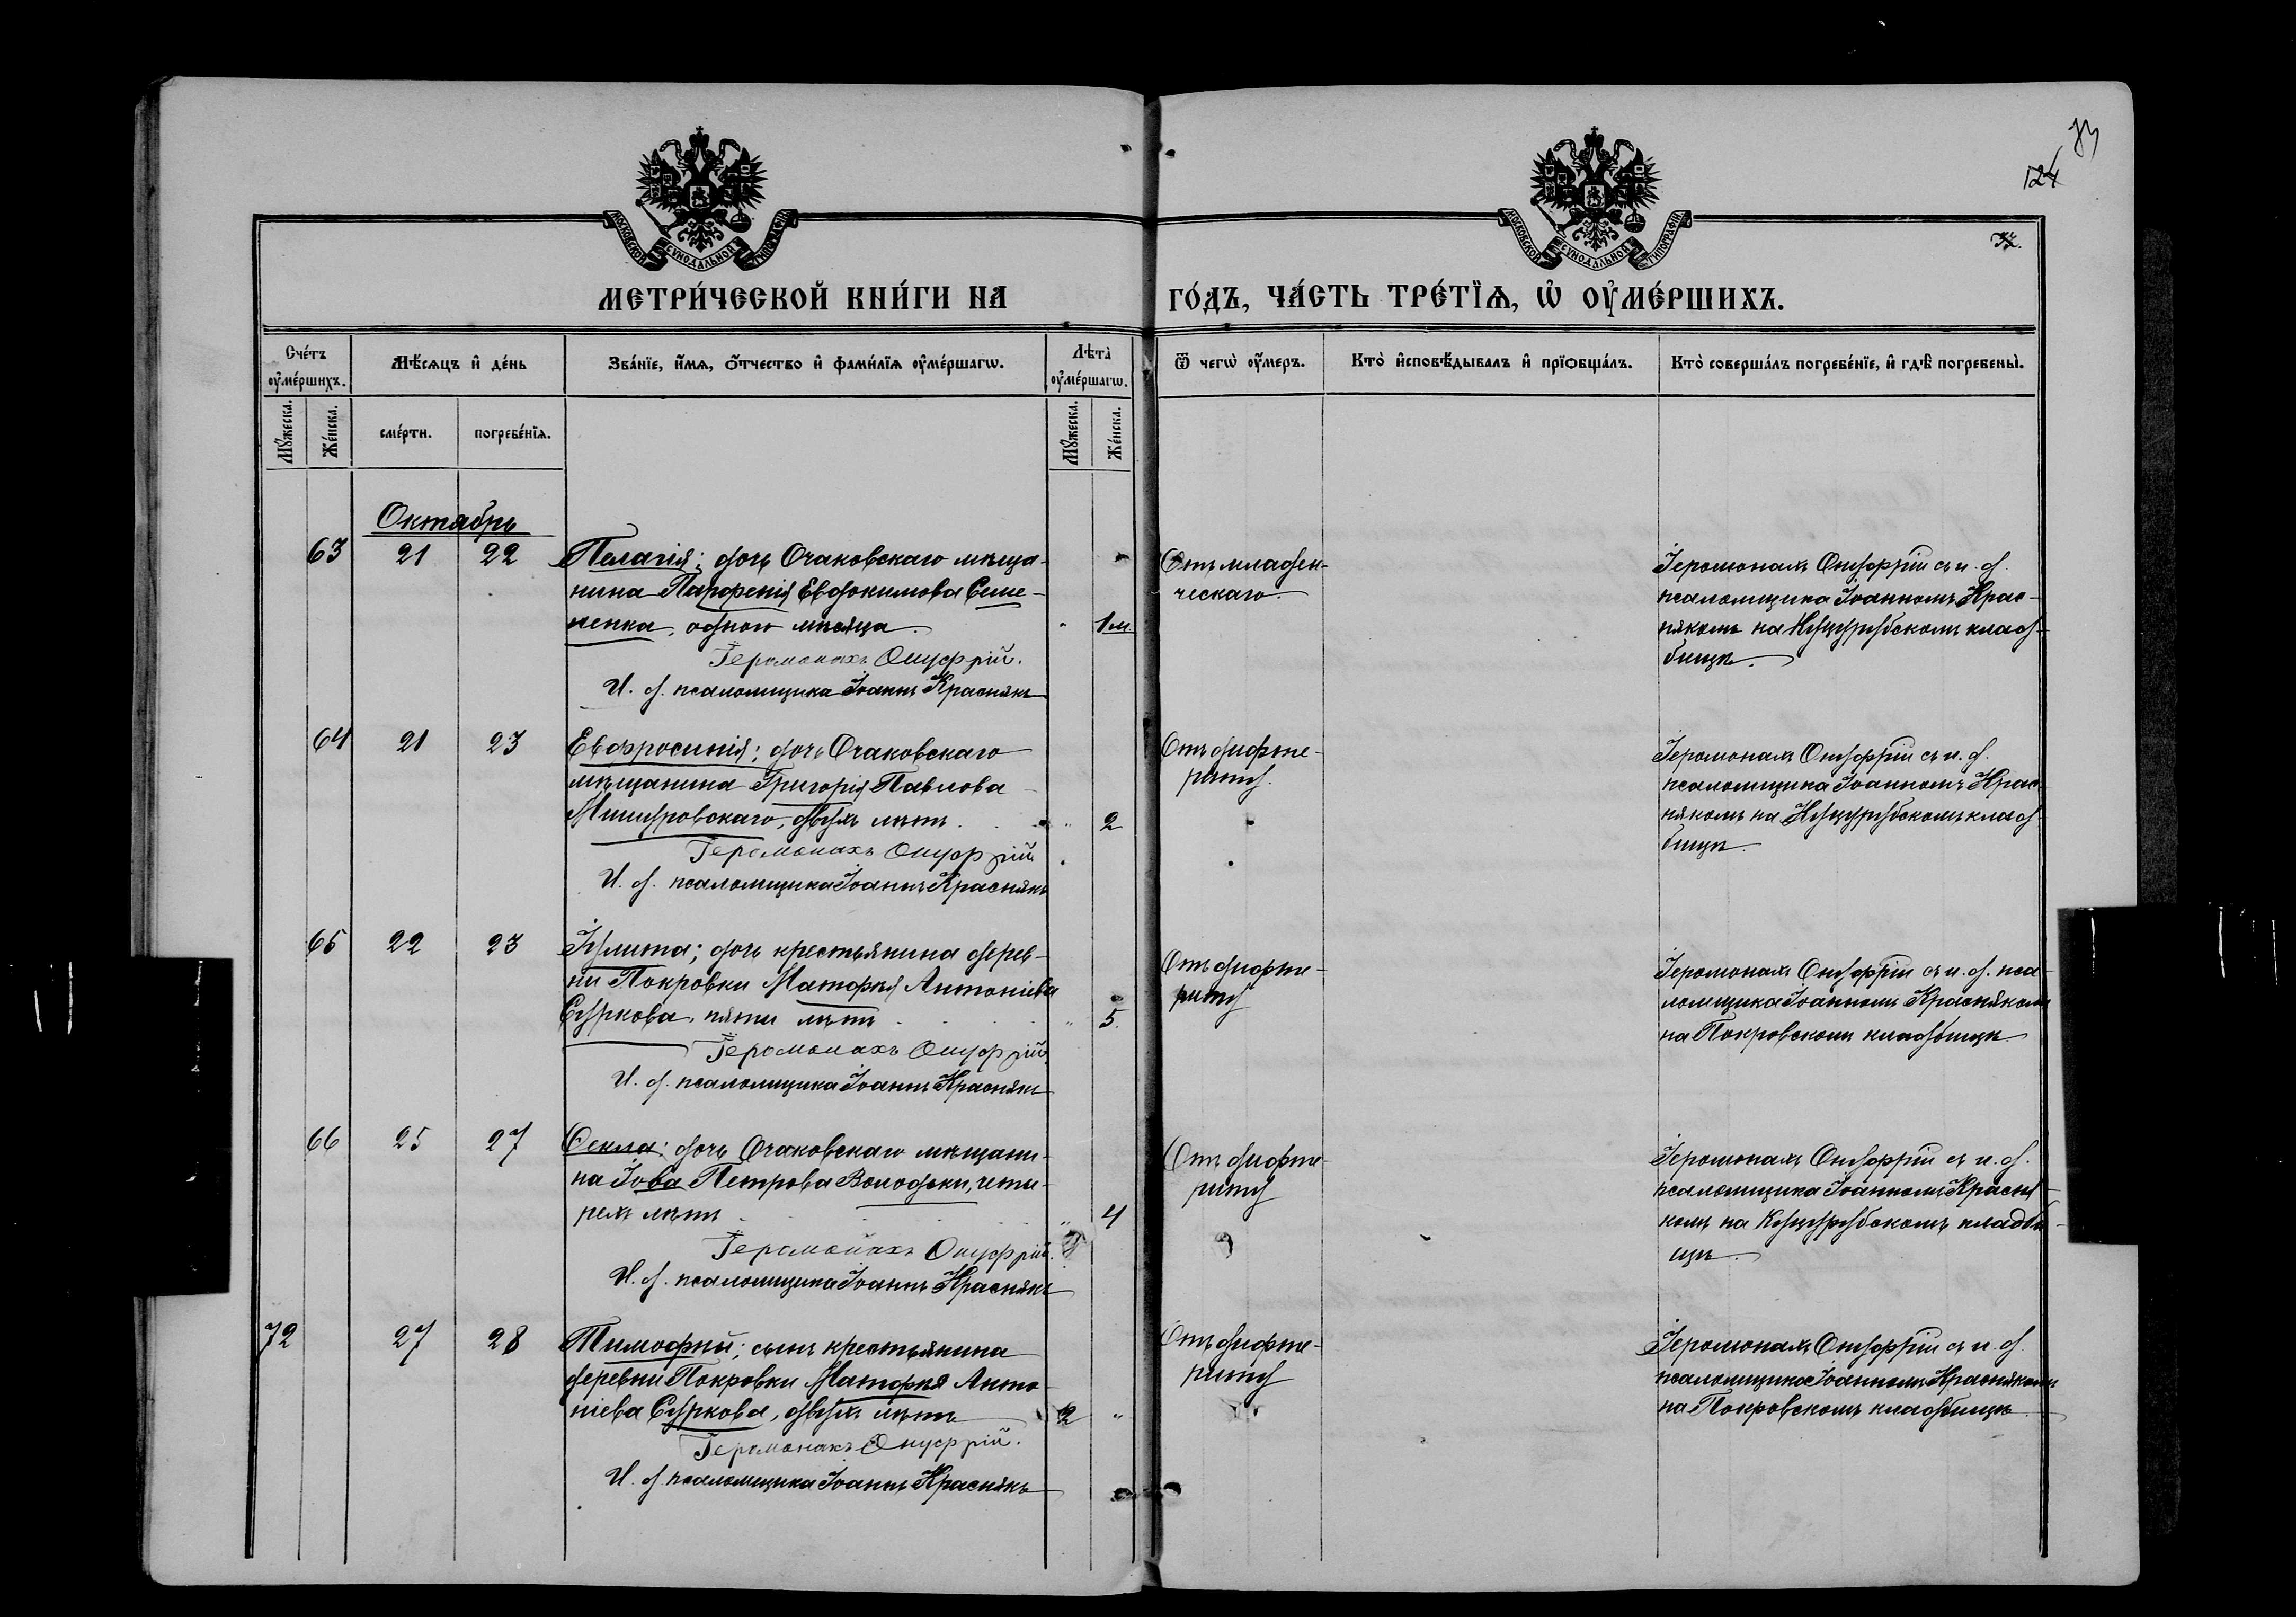 73
124
МОСКОВСКОЙ СѴНОДАЛЬНОЙ ТИПОГРАФІИ
МОСКОВСКОЙ СѴНОДАЛЬНОЙ ТИПОГРАФІИ
МЕТРИ́ЧЕСКОЙ КНИ́ГИ НА ГО́ДЪ, ЧА́СТЬ ТРЕ́ТЇѦ, Ѡ҆ ОУ҆МЕ́РШИХЪ.
Сче́тъ оу҆ме́ршихъ.
Мѣ́сѧцъ и҆ де́нь
Зва́нїе, и҆́мѧ, ѻ҆́тчество и҆ фами́лїѧ оу҆ме́ршагѡ.
Лѣ́та оу҆ме́ршагѡ.
Ѿ чегѡ̀ оу҆́меръ.
Кто̀ и҆сповѣ́дывалъ и҆ прїѻбща́лъ.
Кто̀ соверша́лъ погребе́нїе, и҆ гдѣ̀ погребены̀.
Мꙋ́жеска.
Же́нска.
сме́рти.
погребе́нїѧ.
Мꙋ́жеска.
Же́нска.
Октябрь
63 21 22 Пелагія; дочь Очаковскаго мѣща-
нина Парфенія Евдокимова Семе-
ненка, одного мѣсяца. " 1 м.
Іеромонахъ Онуфрій.
И. д. псаломщика Іоаннъ Краснякъ
Отъ младен-
ческаго.
Іеромонахъ Онуфрій съ и. д.
псаломщика Іоанномъ Крас-
някомъ на Куцурубскомъ клад-
бищѣ.
64 21 23 Евфросинія; дочь Очаковскаго
мѣщанина Григорія Павлова
Мишуровскаго, двухъ лѣтъ . . " 2
Іеромонахъ Онуфрій
И. д. псаломщика Іоаннъ Краснякъ
Отъ дифте-
риту.
Іеромонахъ Онуфрій съ и. д.
псаломщика Іоанномъ Крас-
някомъ на Куцурубскомъ клад-
бищѣ.
65 22 23 Іулита; дочь крестьянина дерев-
ни Покровки Матфея Антоніева
Суркова, пяти лѣтъ . . . " 5.
Іеромонахъ Онуфрій
И. д. псаломщика Іоаннъ Краснякъ
Отъ дифте-
риту
Іеромонахъ Онуфрій съ и. д. пса-
ломщика Іоанномъ Краснякомъ
на Покровскомъ кладбищѣ.
66 25 27 Ѳекла; дочь Очаковскаго мѣщани-
на Іова Петрова Володьки, четы-
рехъ лѣтъ . . . " 4
Іеромонахъ Онуфрій.
И. д. псаломщика Іоаннъ Краснякъ
Отъ дифте-
риту
Іеромонахъ Онуфрій съ и. д.
псаломщика Іоанномъ Красня-
комъ на Куцурубскомъ кладби-
щѣ.
72 27 28 Тимофей; сынъ крестьянина
деревни Покровки Матфея Анто-
ніева Суркова, двухъ лѣтъ 2 "
Іеромонахъ Онуфрій.
И. д. псаломщика Іоаннъ Краснякъ
Отъ дифте-
риту
Іеромонахъ Онуфрій съ и. д.
псаломщика Іоанномъ Краснякомъ
на Покровскомъ кладбищѣ